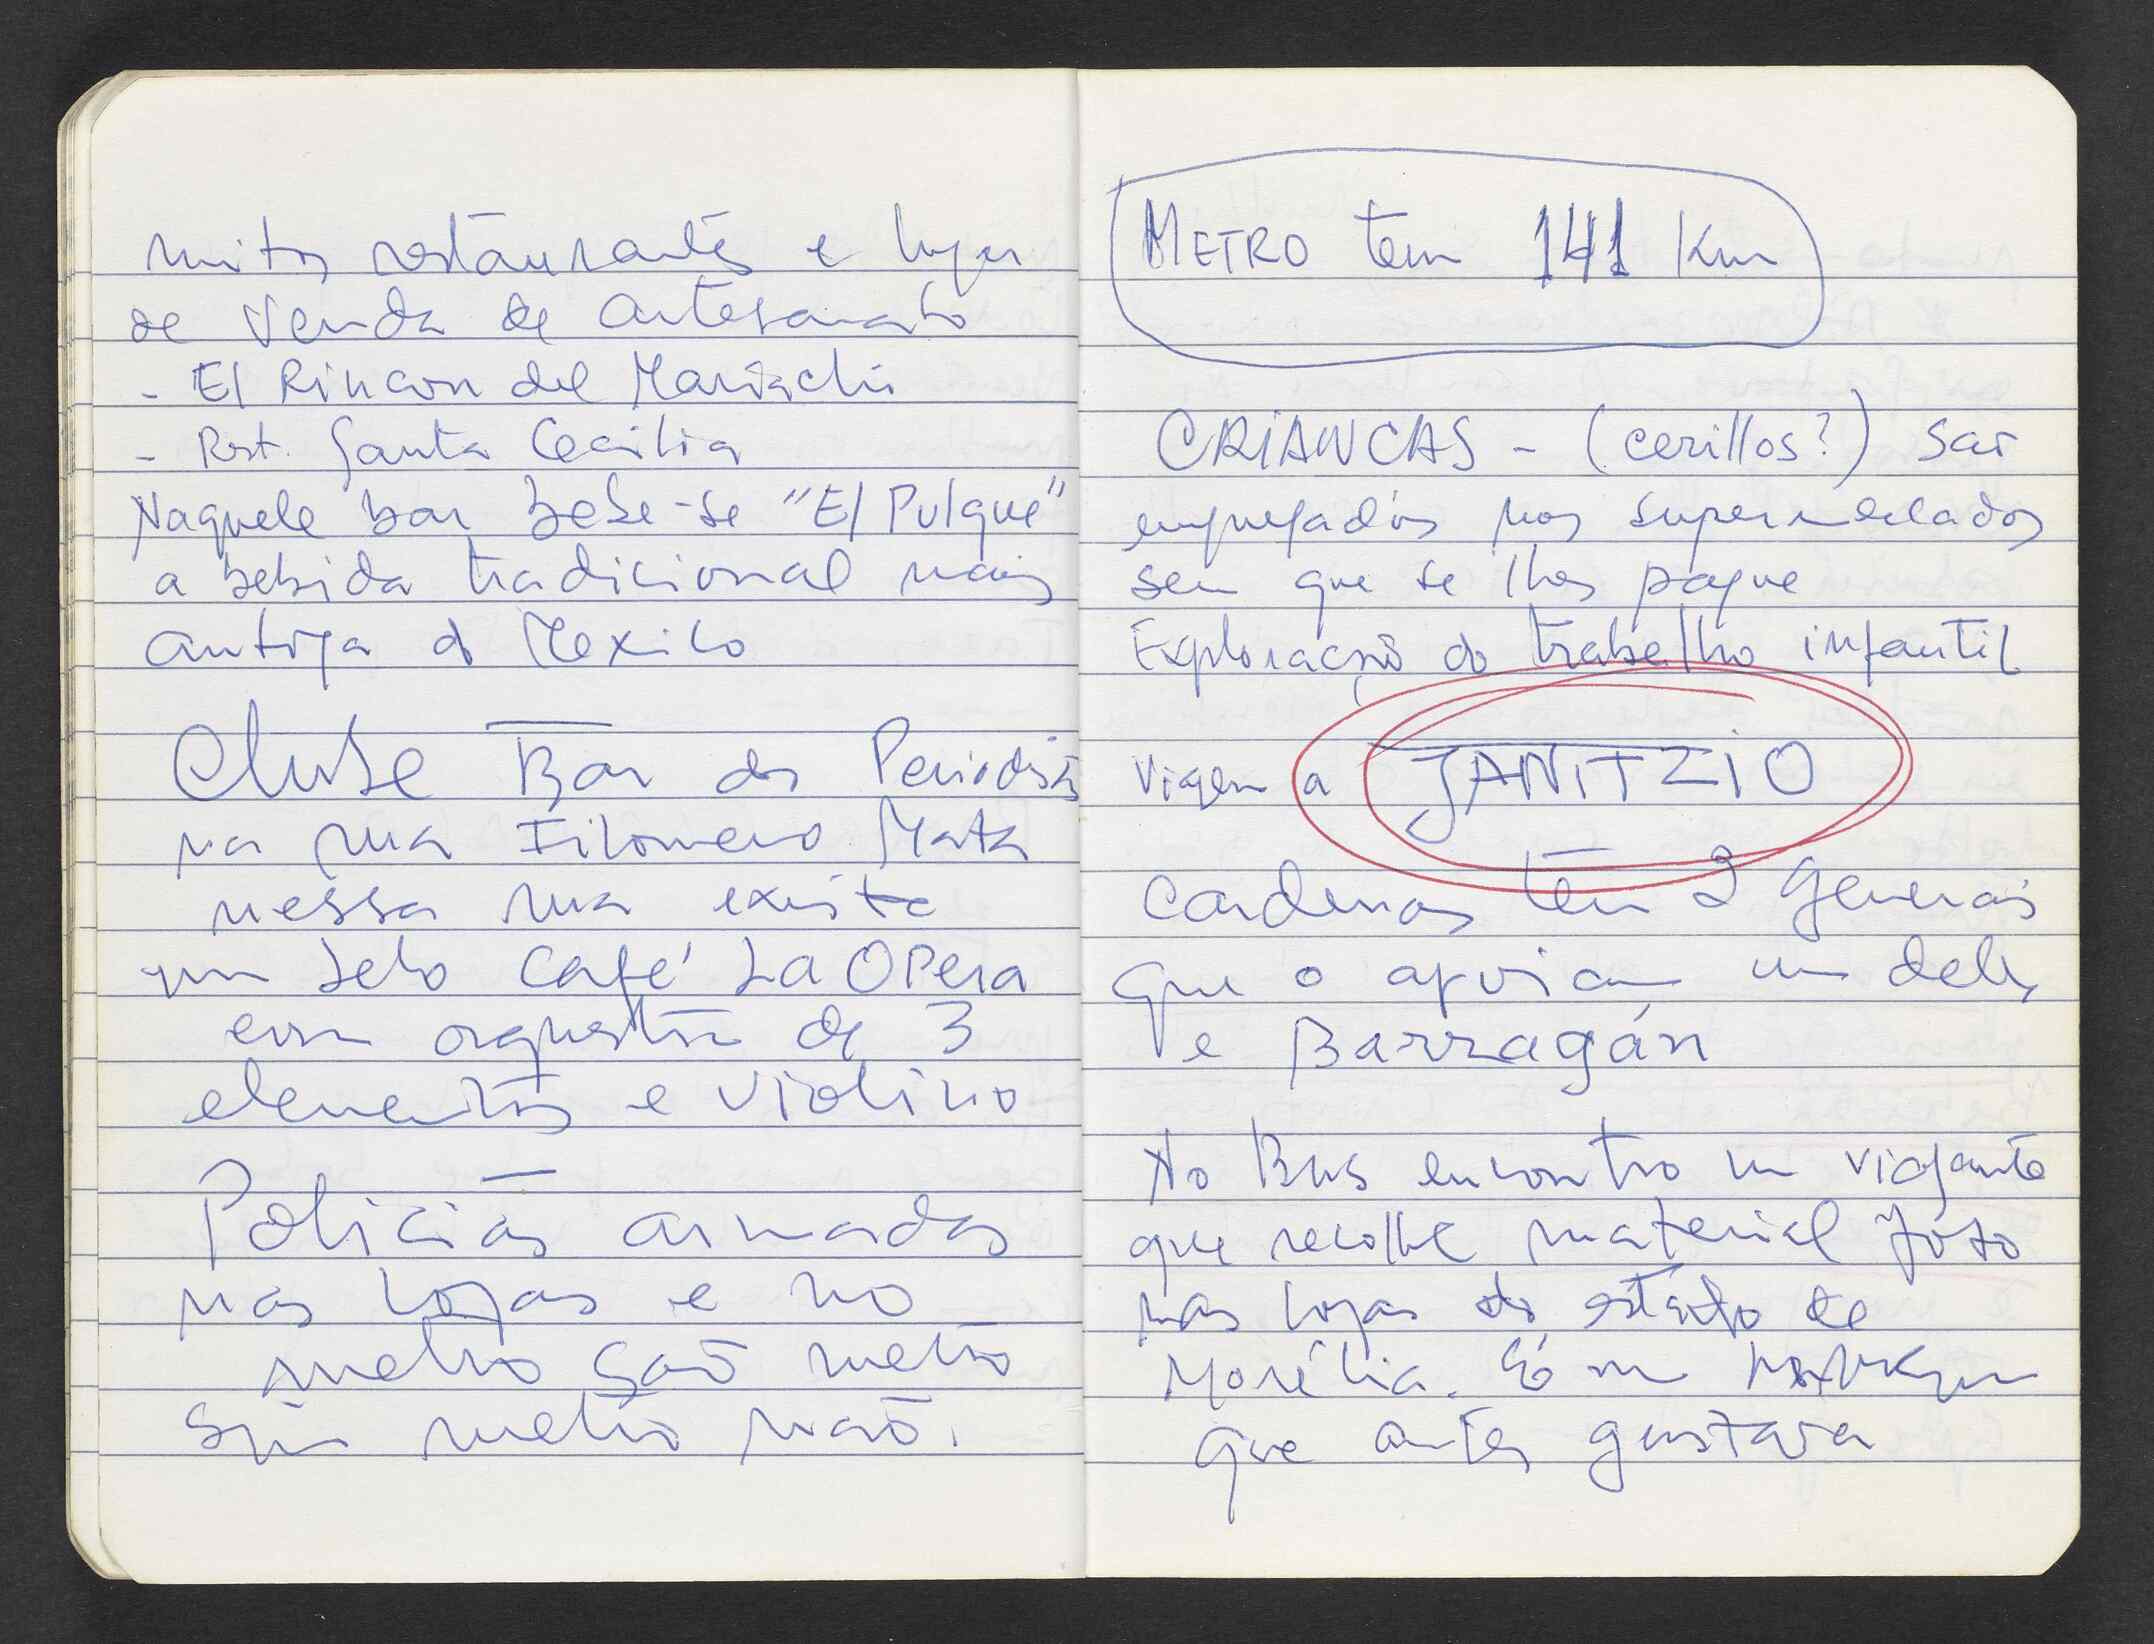 muitos restaurantes e lugar
de venda de artesanato
- El Rincon del Mariachi
- Rest. Santa Cecilia
Naquele bar bebe-se "El Pulque"
a bebida tradicional mais
antiga do Mexico
Clube Bar dos Periodistas
na rua Filomeno Mata
nessa rua existe
um belo café La Opera
com orquestra de 3
elementos e violino
Policias armados
nas lojas e no
metro são metro
sim metro não.
METRO tem 141 Km
CRIANCAS - (cerillos?) sao
empregados nos supermercados
sem que se lhes pague
Exploração do trabalho infantil
Viagem a JANITZIO
Cardenas tem 2 generais
que o apoiam um deles
e Barragán
No Bus encontro um viajante
que recolhe material foto
nas lojas do estado de
Morélia. É um
que antes gustava